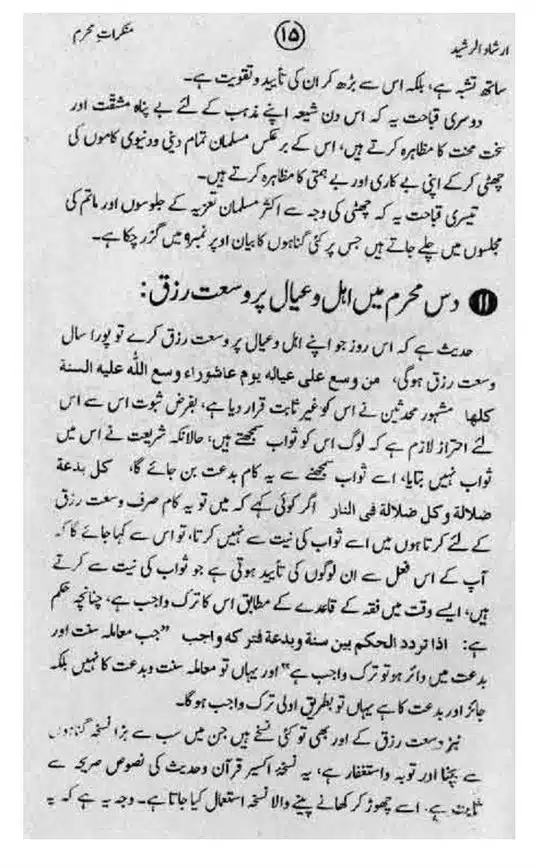 ارشاد الرشید
۱۵
منکراتِ محرم
ساتھ تشبہ ہے، بلکہ اس سے بڑھ کر ان کی تأیید و تقویت ہے۔
دوسری قباحت یہ کہ اس دن شیعہ اپنے مذہب کے لئے بے پناہ مشقت اور
سخت محنت کا مظاہرہ کرتے ہیں، اس کے برعکس مسلمان تمام دینی و دنیوی کاموں کی
چھٹی کر کے اپنی بے کاری اور بے ہمتی کا مظاہرہ کرتے ہیں۔
تیسری قباحت یہ کہ چھٹی کی وجہ سے اکثر مسلمان تعزیہ کے جلوسوں اور ماتم کی
مجلسوں میں چلے جاتے ہیں جس پر کئی گناہوں کا بیان اوپر نمبر ۹ میں گزر چکا ہے۔
۱۱ دس محرم میں اہل و عیال پر وسعت رزق:
حدیث ہے کہ اس روز جو اپنے اہل و عیال پر وسعت رزق کرے تو پورا سال
وسعت رزق ہوگی، من وسع على عياله يوم عاشوراء وسع الله عليه السنة
كلها مشہور محدثین نے اس کو غیر ثابت قرار دیا ہے، بفرض ثبوت اس سے اس
لئے احتراز لازم ہے کہ لوگ اس کو ثواب سمجھتے ہیں، حالانکہ شریعت نے اس میں
ثواب نہیں بتایا، اسے ثواب سمجھنے سے یہ کام بدعت بن جائے گا، كل بدعة
ضلالة وكل ضلالة فى النار اگر کوئی کہے کہ میں تو یہ کام صرف وسعت رزق
کے لئے کرتا ہوں میں اسے ثواب کی نیت سے نہیں کرتا، تو اس سے کہا جائے گا کہ
آپ کے اس فعل سے ان لوگوں کی تأیید ہوتی ہے جو ثواب کی نیت سے کرتے
ہیں، ایسے وقت میں فقہ کے قاعدے کے مطابق اس کا ترک واجب ہے، چنانچہ حکم
ہے: اذا تردد الحكم بين سنة وبدعة فتركه واجب "جب معاملہ سنت اور
بدعت میں دائر ہو تو ترک واجب ہے" اور یہاں تو معاملہ سنت و بدعت کا نہیں بلکہ
جائز اور بدعت کا ہے یہاں تو بطریق اولی ترک واجب ہوگا۔
نیز وسعت رزق کے اور بھی تو کئی نسخے ہیں جن میں سب سے بڑا نسخہ گناہوں
سے بچنا اور توبہ و استغفار ہے، یہ نسخۂ اکسیر قرآن و حدیث کی نصوص صریحہ سے
ثابت ہے، اسے چھوڑ کر کھانے پینے والا نسخہ استعمال کیا جاتا ہے۔ وجہ یہ ہے کہ یہ